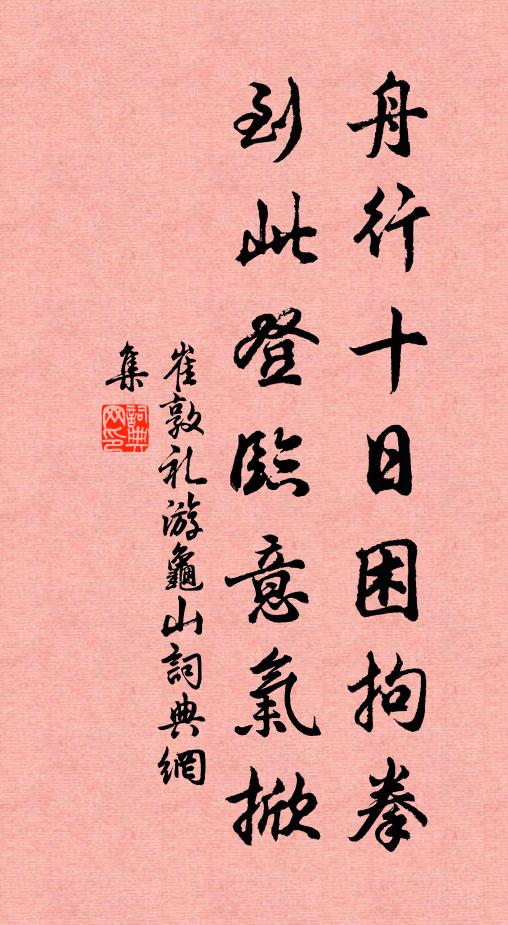 舟行十日困拘拳
到此登臨意氣掀
崔敦礼游龜山詞典網
集
詞典網印